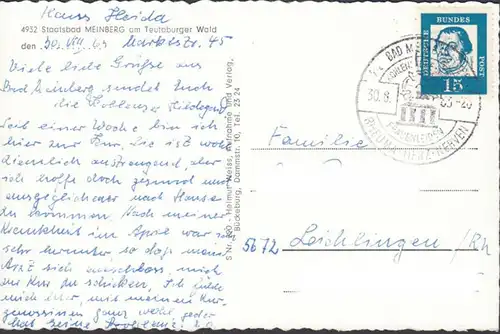 Haus Heida
4932 Staatsbad MEINBERG am Teutoburger Wald
den 30. VIII. 63 Marktstr. 45
Viele liebe Grüße aus
Bad Meinberg sendet Euch
die Hildegard
Seit einer Woche bin ich
hier zur Kur. Sie ist wohl
ziemlich anstrengend, aber
ich hoffe doch gesund und
ausgeglichener nach Hause
zu kommen. Nach meiner
Krankheit im April war ich
sehr herunter, so daß mein
Arzt sich entschloss, mich
zur Kur zu schicken. Ich fühle
mich hier, mit meinen Kur-
genossinen ganz wohl, jeder
hat seine
S Nr. 890 - Helmut Weiss, Aufnahme und Verlag,
Bückeburg, Dammstr. 10, Tel. 23 24
DEUTSCHE BUNDES POST
15
BAD
30.8.
63-20
RHEUMA-HERZ-NERVEN
Familie
5672 Leichlingen/Rh